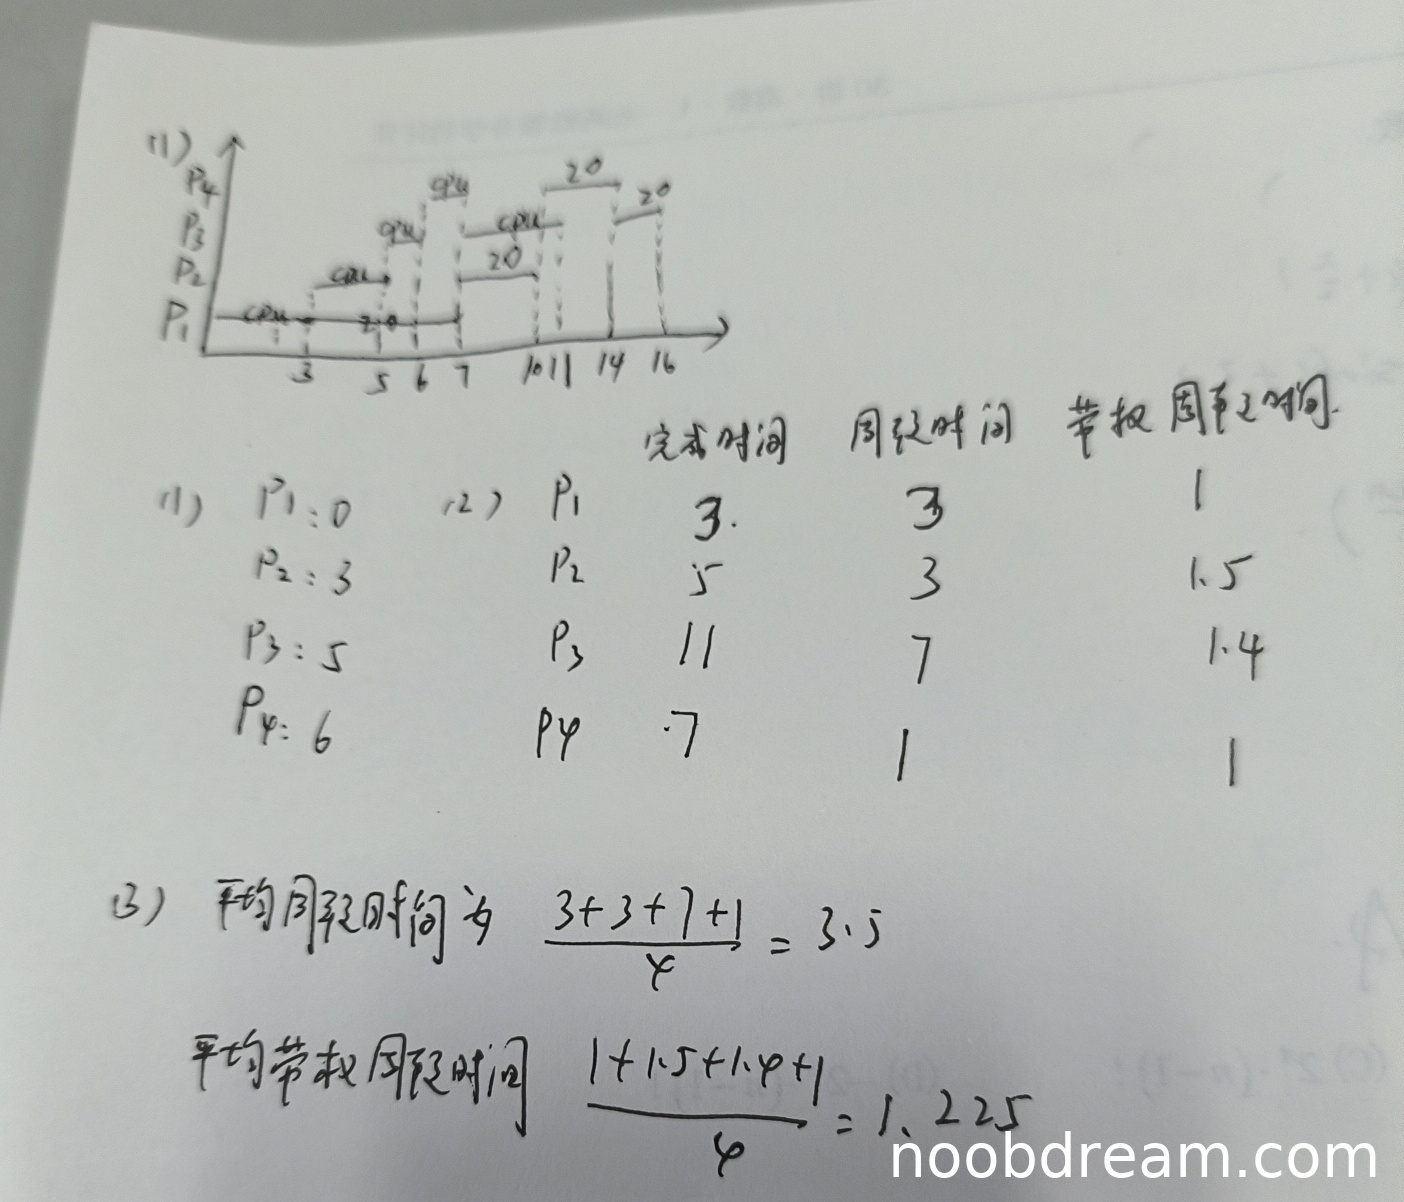 (1)
P4 cpu 20
P3 cpu cpu 20
P2 cpu 20
P1 cpu 20
3 5 6 7 10 11 14 16
完成时间 周转时间 带权周转时间.
(1) P1:0 (2) P1 3. 3 1
P2:3 P2 5 3 1.5
P3:5 P3 11 7 1.4
P4:6 P4 .7 1 1
(3) 平均周转时间为 3+3+7+1 / 4 = 3.5
平均带权周转时间 1+1.5+1.4+1 / 4 = 1.225
noobdream.com